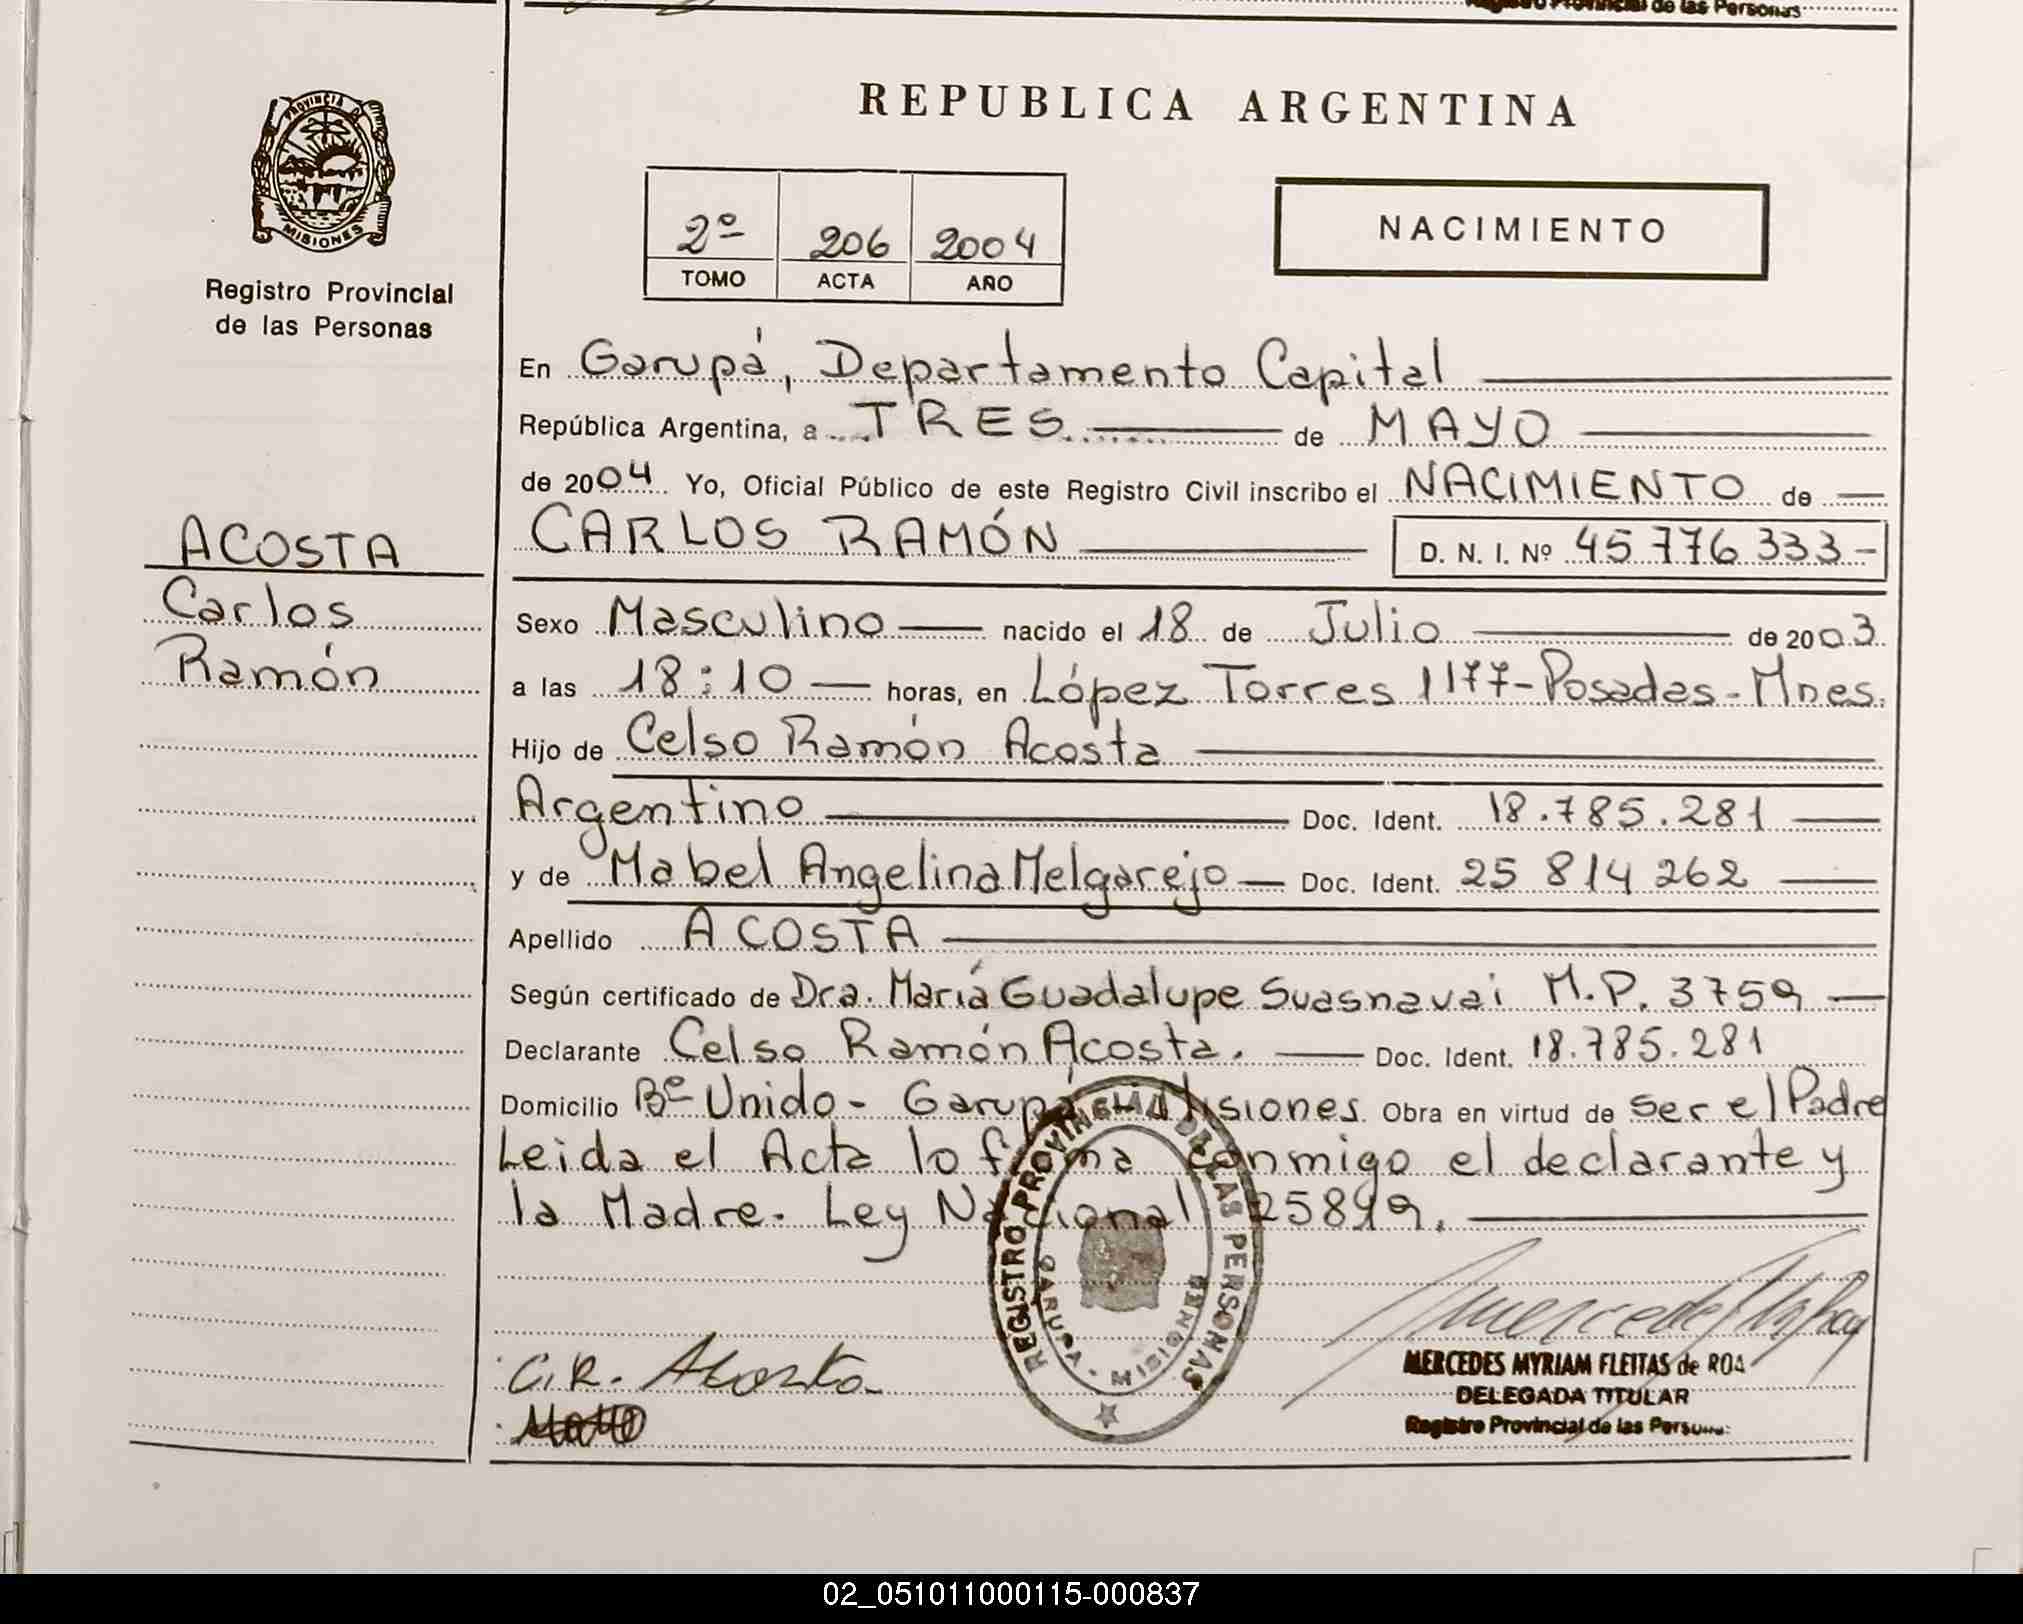 Registro Provincial de las Personas
REPUBLICA ARGENTINA
PROVINCIA DE
MISIONES
Registro Provincial
de las Personas
2º 206 2004
TOMO ACTA AÑO
NACIMIENTO
En Garupá, Departamento Capital
República Argentina, a TRES de MAYO
de 2004 Yo, Oficial Público de este Registro Civil inscribo el NACIMIENTO de
CARLOS RAMÓN D. N. I. Nº 45776333-
ACOSTA
Carlos
Ramón
Sexo Masculino nacido el 18 de Julio de 2003
a las 18:10 horas, en López Torres 1177-Posadas-Mnes.
Hijo de Celso Ramón Acosta
Argentino Doc. Ident. 18.785.281
y de Mabel Angelina Melgarejo Doc. Ident. 25 814 262
Apellido ACOSTA
Según certificado de Dra. María Guadalupe Suasnavai M.P. 3759
Declarante Celso Ramón Acosta. Doc. Ident. 18.785.281
Domicilio Bº Unido - Garupá - Misiones Obra en virtud de ser el Padre
Leida el Acta lo firma conmigo el declarante y
la Madre. Ley Nacional 25819.
REGISTRO PROVINCIAL DE LAS PERSONAS
GARUPA - MISIONES
C.R. Acosta
MERCEDES MYRIAM FLEITAS de ROA
DELEGADA TITULAR
Registro Provincial de las Personas
02_051011000115-000837